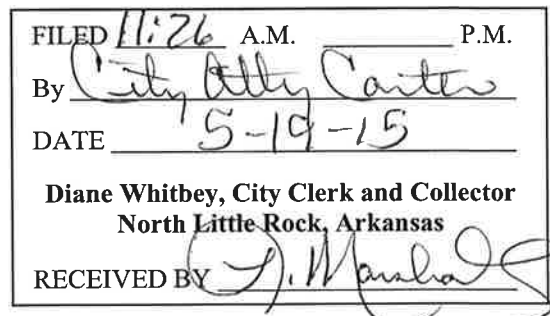 FILED 11:26 A.M. ________ P.M.
By City Atty Carter
DATE 5-19-15
Diane Whitbey, City Clerk and Collector
North Little Rock, Arkansas
RECEIVED BY J. Marshall